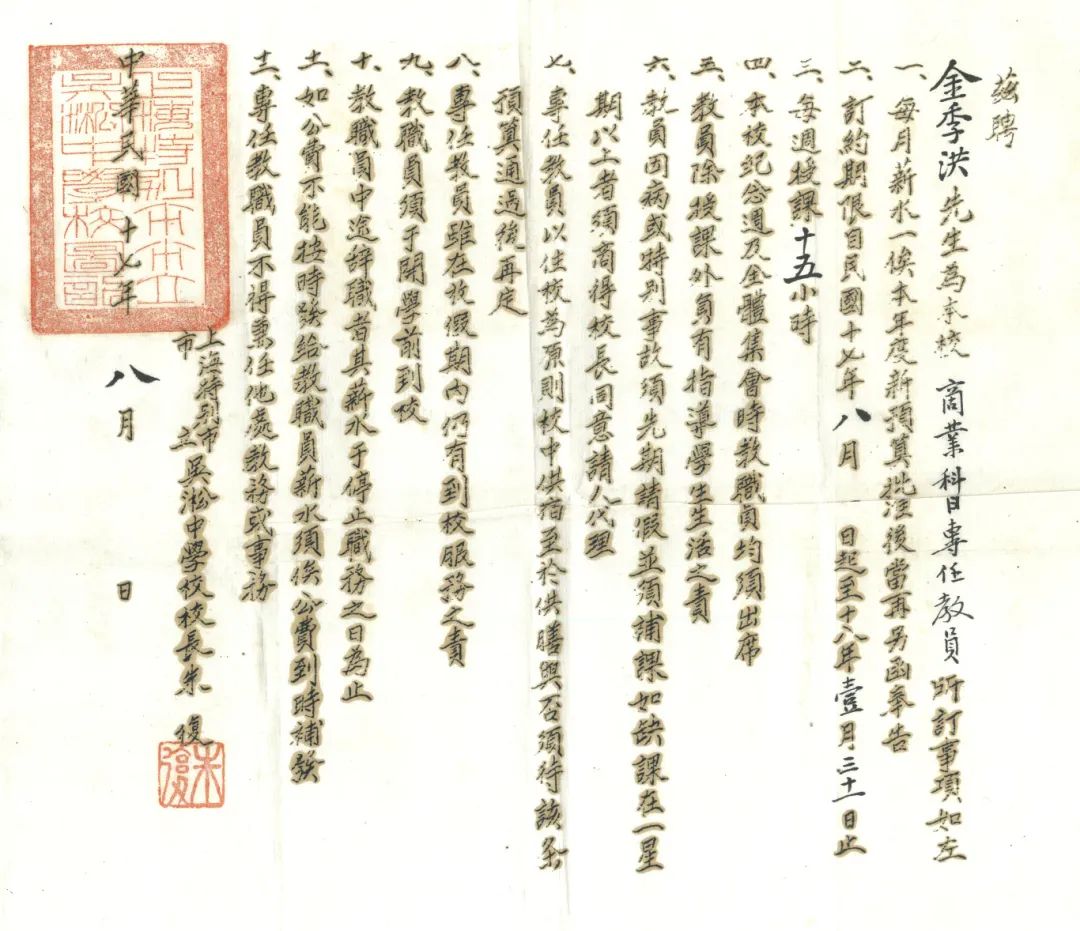 茲聘
金季洪先生為本校商業科目專任教員所訂事項如左
一、每月薪水一俟本年度新預算批准後當再另函奉告
二、訂約期限自民國十七年八月 日起至十八年壹月三十一日止
三、每週授課十五小時
四、本校紀念週及全體集會時教職員均須出席
五、教員除授課外負有指導學生生活之責
六、教員因病或特別事故須先期請假並須補課如缺課在一星
期以上者須商得校長同意請人代理
七、專任教員以住校為原則校中供宿至於供膳與否須待該條
預算通過後再定
八、專任教員雖在放假期內仍有到校服務之責
九、教職員須于開學前到校
十、教職員中途辭職者其薪水于停止職務之日為止
十一、如公費不能按時發給教職員薪水須俟公費到時補發
十二、專任教職員不得兼任他處教務或事務
上海特別市市立吳淞中學校校長朱復
中華民國十七年八月 日
朱復